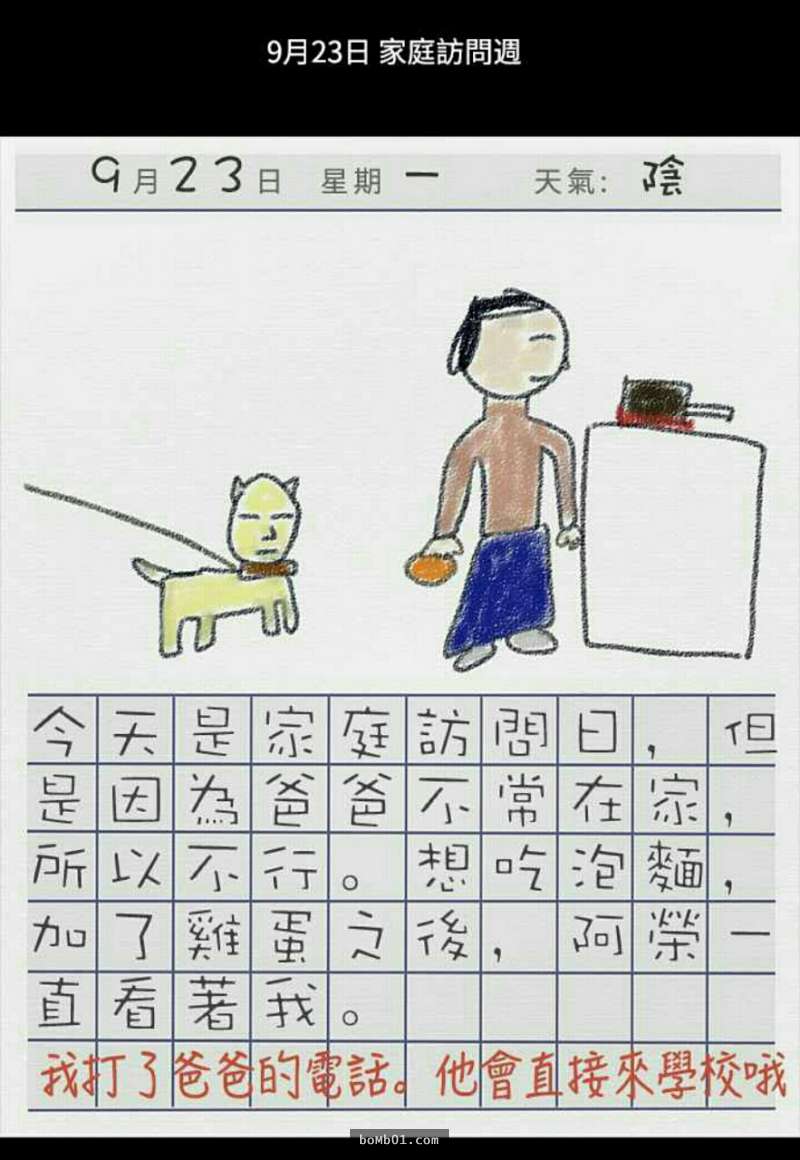 9月23日 家庭訪問週
9月23日 星期一 天氣: 陰
今天是家庭訪問日,但
是因為爸爸不常在家,
所以不行。想吃泡麵,
加了雞蛋之後,阿榮一
直看著我。
我打了爸爸的電話。他會直接來學校哦
boMbO1.com